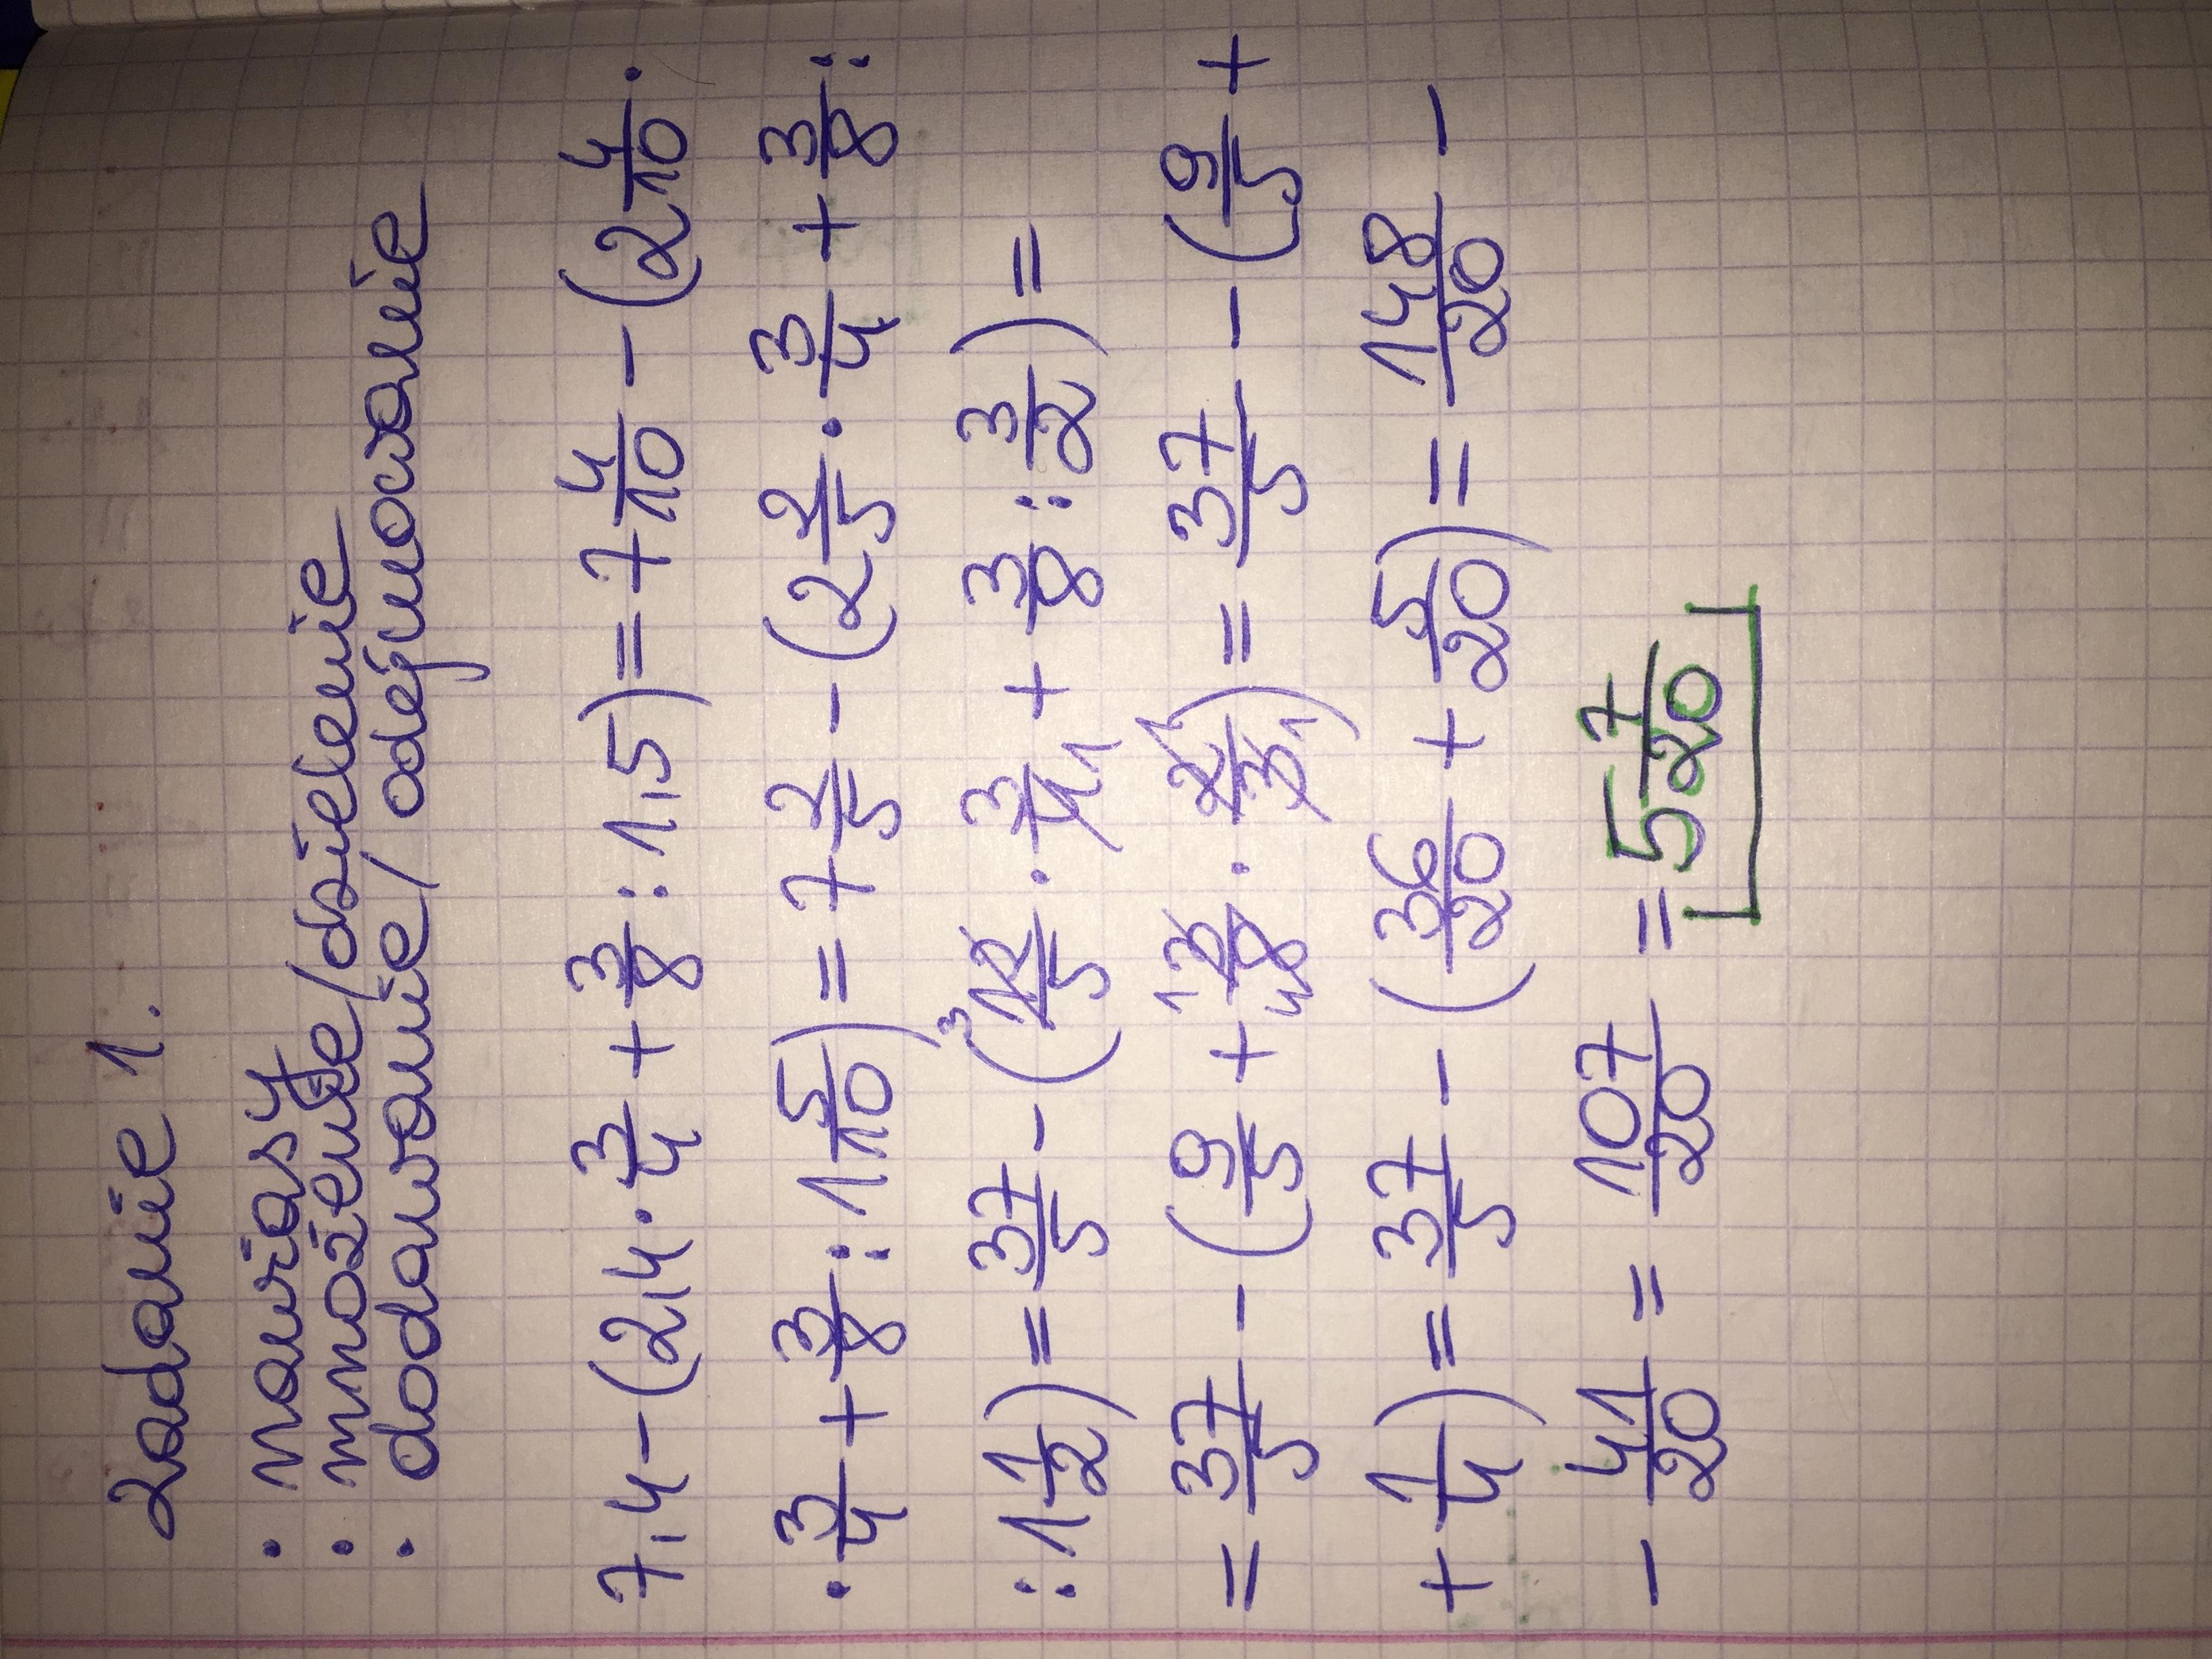 Zadanie 1.
• nawiasy
• mnożenie/dzielenie
• dodawanie/odejmowanie
7,4-(2,4·3/4+3/8:1,5)=7 4/10-(2 4/10·
·3/4+3/8:1 5/10)=7 2/5-(2 2/5·3/4+3/8:
:1 1/2)=37/5-(12/5·3/4+3/8:3/2)=
=37/5-(9/5+3/8·2/3)=37/5-(9/5+
+1/4)=37/5-(36/20+5/20)=148/20-
-41/20=107/20=5 7/20